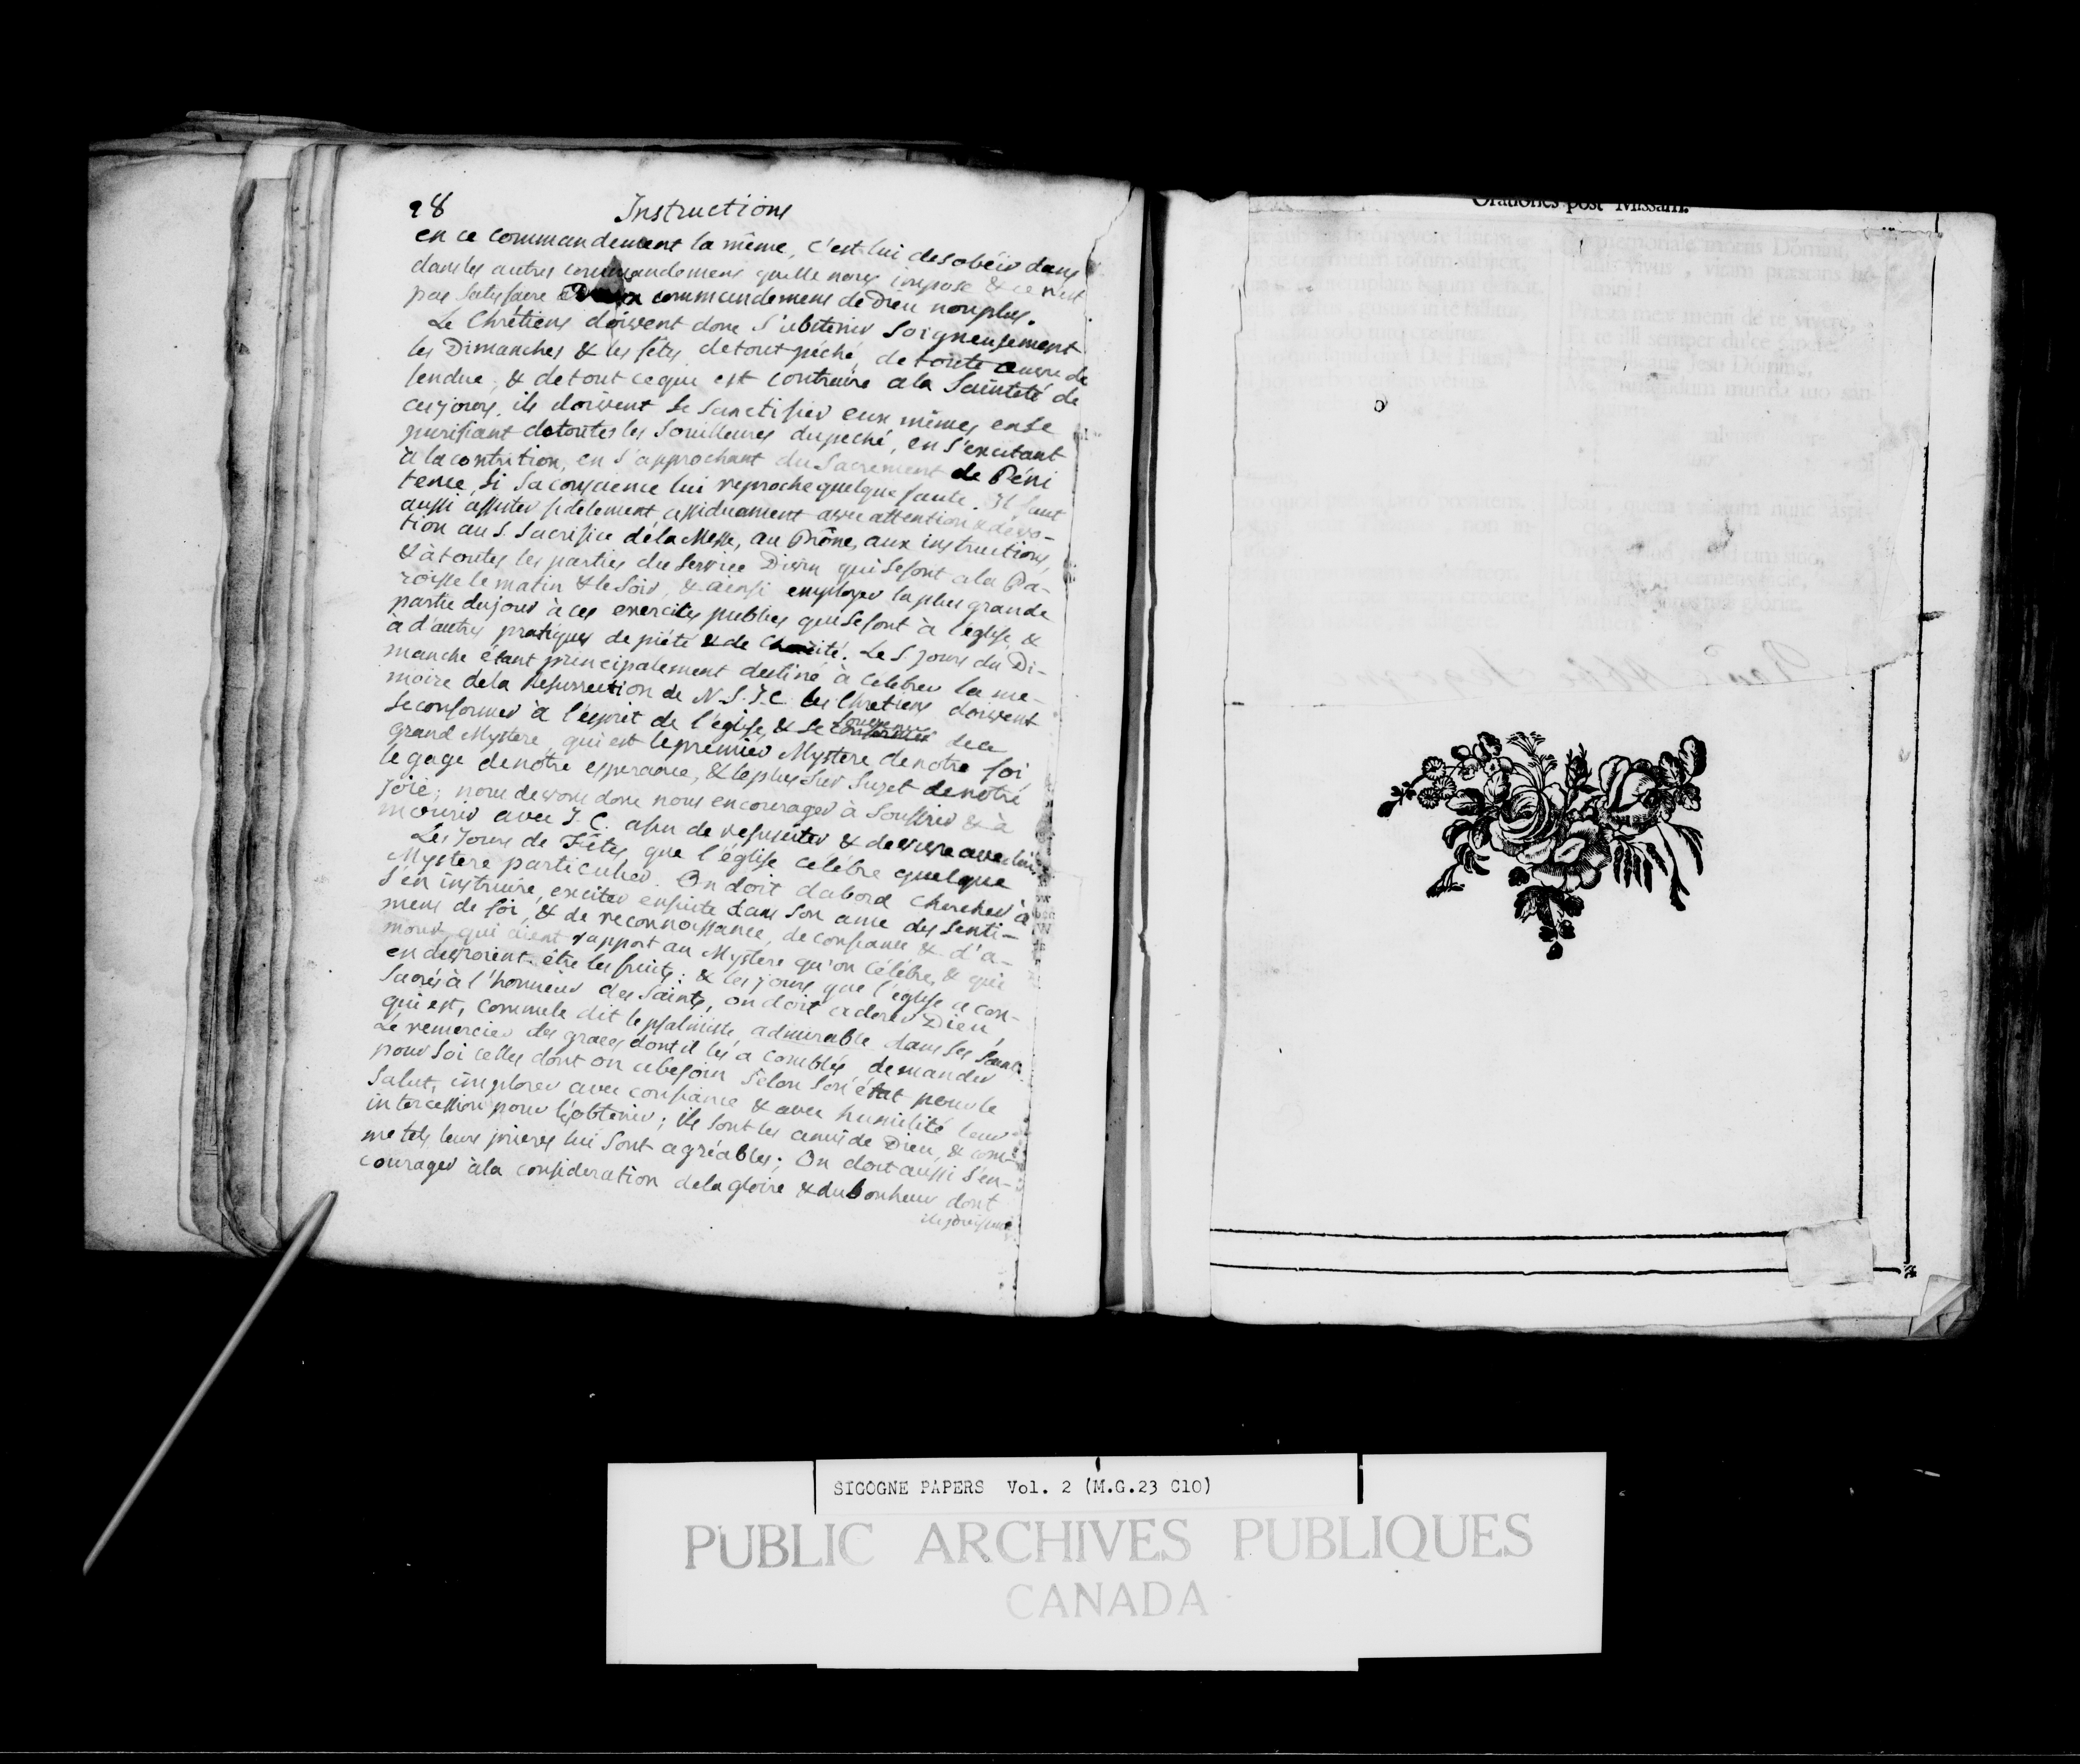 98 Instructions
en ce commandement la même, c'est lui desobéir dans
dans les autres commandemens quelle nous impose & ce n'est
pas satisfaire commandemens de Dieu non plus.
Le Chrétiens doivent donc s'abstenir soigneusement
les Dimanches & les fêtes de tout péché, de toute œuvre de
fendue, & de tout ce qui est contraire a la Sainteté de
ces jours. ils doivent se sanctifier eux mêmes en se
purifiant de toutes les souillures du peché, en s'excitant
à la contrition, en s'approchant du Sacrement de Péni
tence, si sa conscience lui reproche quelque faute. Il faut
aussi assister fidelement assiduement avec attention & dévo-
tion au S. Sacrifice de la Messe, au Prône, aux instructions,
& à toutes les parties du Service Divin qui se font a la Pa-
roisse le matin & le soir, & ainsi employer la plus grande
partie du jour à ces exercices publics qui se font à l'église, &
à d'autres pratiques de piété & de Charité. Le S. jour du Di-
manche étant principalement destiné à celebrer la me-
moire de la Resurrection de N. S. J. C. les Chretiens doivent
se conformer à l'esprit de l'église, & se souvenir de ce
grand Mystere, qui est le premier Mystere de notre foi,
le gage de notre esperance, & le plus sur sujet de notre
joie; nous devons donc nous encourager à souffrir & à
mourir avec J. C. afin de resusciter & de vivre avec lui.
Les Jours de Fêtes que l'église celébre quelque
Mystere particulier. On doit d'abord chercher à
s'en instruire, exciter ensuite dans son ame des senti-
mens de foi, & de reconnoissance, de confiance & d'a-
mour qui aient rapport au Mystere qu'on célébre, & qui
en devroient être les fruits: & les jours que l'église a con-
sacrés à l'honneur des Saints, on doit adorer Dieu,
qui est, comme le dit le psalmiste, admirable dans ses Saints.
Le remercier des graces dont il les a comblés, demander
pour soi celles dont on a besoin selon son état pour le
Salut, implorer avec confiance & avec humilité leur
intercession pour les obtenir; ils sont les amis de Dieu, & com-
me tels leurs prieres lui sont agréables; On doit aussi s'en-
courager à la consideration de la gloire & du bonheur dont
ils jouissent
Orationes post Missam.
SICOGNE PAPERS Vol. 2 (M.G.23 C10)
PUBLIC ARCHIVES PUBLIQUES
CANADA